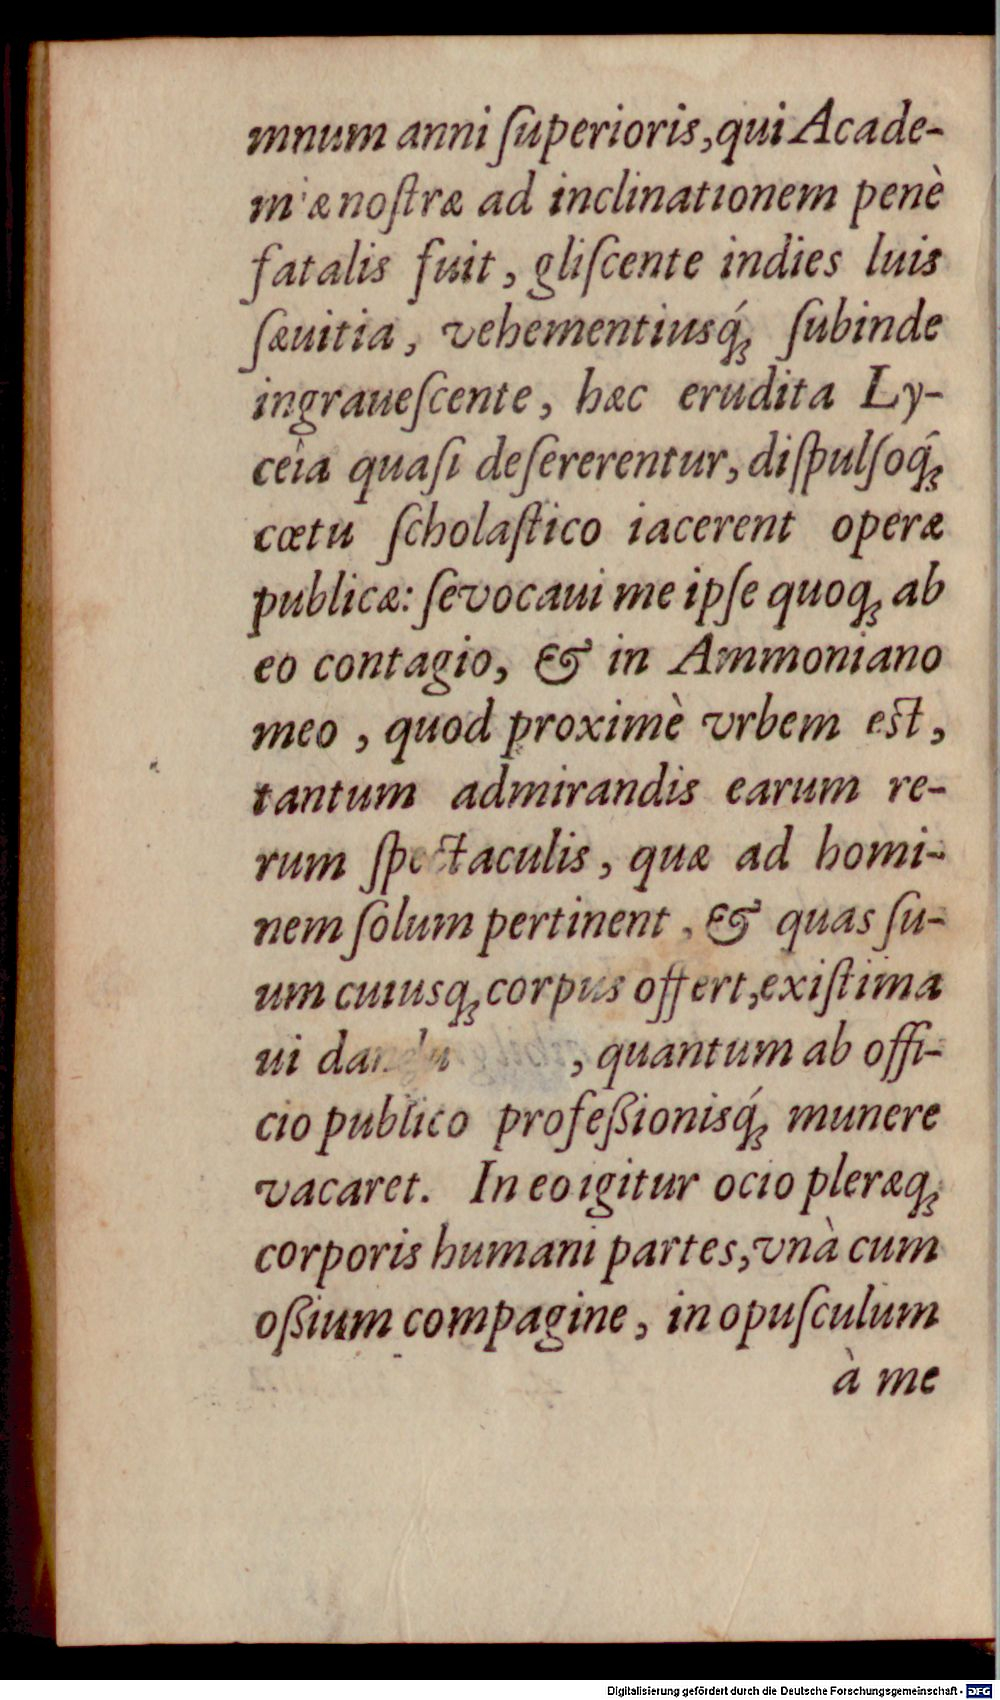 mnum anni ſuperioris, qui Acade-
m æ noſtræ ad inclinationem penè
fatalis fuit, gliſcente indies luis
ſæuitia, vehementiusq́ꝫ ſubinde
ingraueſcente, hæc erudita Ly-
ceia quaſi deſererentur, diſpulſoq́ꝫ
cœtu ſcholaſtico iacerent operæ
publicæ: ſevocaui me ipſe quoqꝫ ab
eo contagio, & in Ammoniano
meo, quod proximè vrbem eſt,
tantum admirandis earum re-
rum ſpectaculis, quæ ad homi-
nem ſolum pertinent, & quas ſu-
um cuiusqꝫ corpus offert, exiſtima
ui , quantum ab offi-
cio publico profeßionisq́ꝫ munere
vacaret. In eo igitur ocio pleræqꝫ
corporis humani partes, vnà cum
oßium compagine, in opuſculum
à me
Digitalisierung gefördert durch die Deutsche Forschungsgemeinschaft - DFG